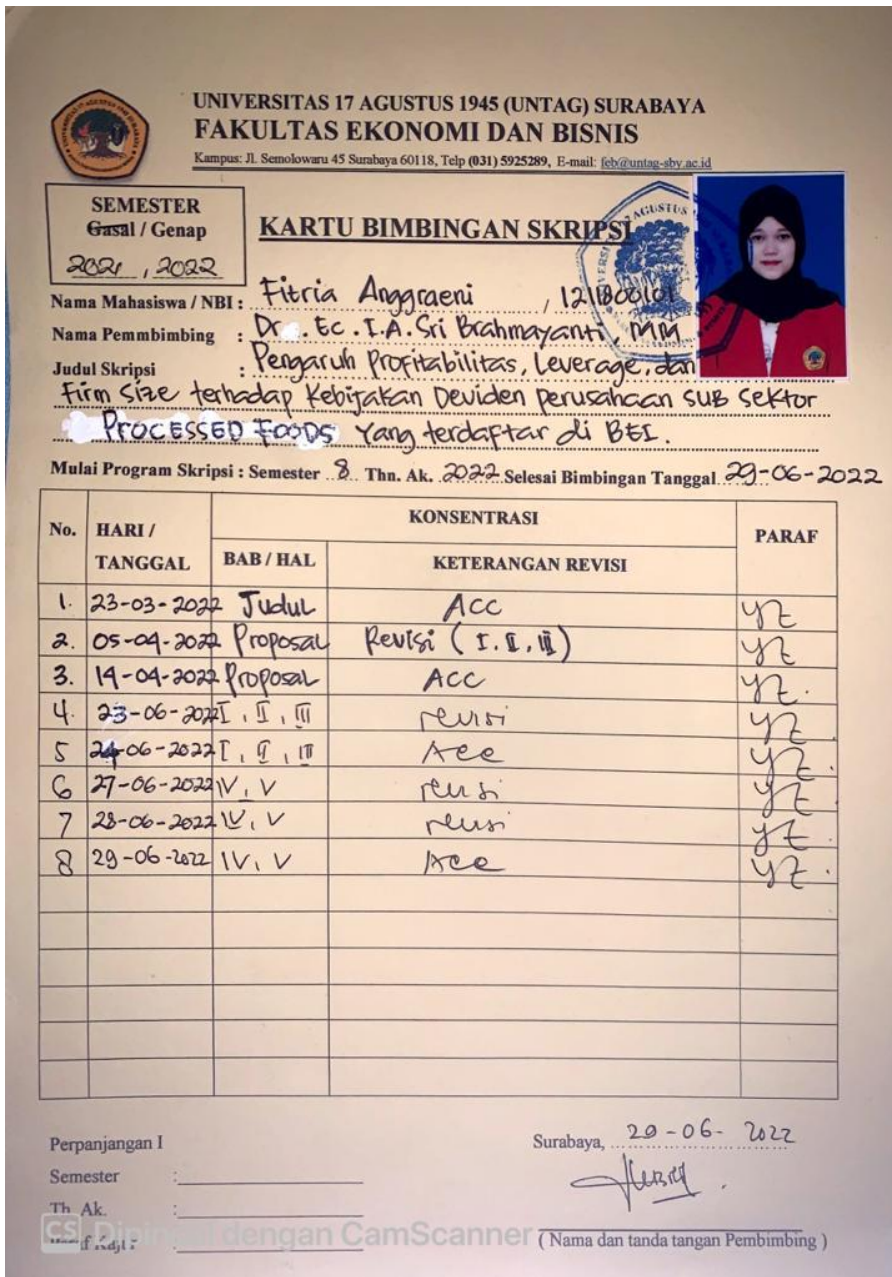 UNIVERSITAS 17 AGUSTUS 1945 (UNTAG) SURABAYA
FAKULTAS EKONOMI DAN BISNIS
Kampus: Jl. Semolowaru 45 Surabaya 60118, Telp (031) 5925289, E-mail: feb@untag-sby.ac.id
SEMESTER
Gasal / Genap
2021 , 2022
KARTU BIMBINGAN SKRIPSI
Nama Mahasiswa / NBI : Fitria Anggraeni , 1211800101
Nama Pemmbimbing : Dr . Ec . I.A. Sri Brahmayanti, MM
Judul Skripsi : Pengaruh Profitabilitas, Leverage, dan
Firm Size terhadap Kebijakan Deviden perusahaan SUB Sektor
PROCESSED FOODS Yang terdaftar di BEI.
Mulai Program Skripsi : Semester 8 Thn. Ak. 2022 Selesai Bimbingan Tanggal 29-06-2022
No. HARI / TANGGAL KONSENTRASI PARAF
BAB / HAL KETERANGAN REVISI
1. 23-03-2022 Judul ACC
2. 05-04-2022 Proposal Revisi ( I. II, III )
3. 14-04-2022 Proposal ACC
4. 23-06-2022 I , II , III revisi
5 24-06-2022 I , II , III Acc
6 27-06-2022 IV, V revisi
7 28-06-2022 IV, V revisi
8 29-06-2022 IV, V Acc
Perpanjangan I
Surabaya, 29-06-2022
Semester :
Th. Ak. :
CS dengan CamScanner
( Nama dan tanda tangan Pembimbing )